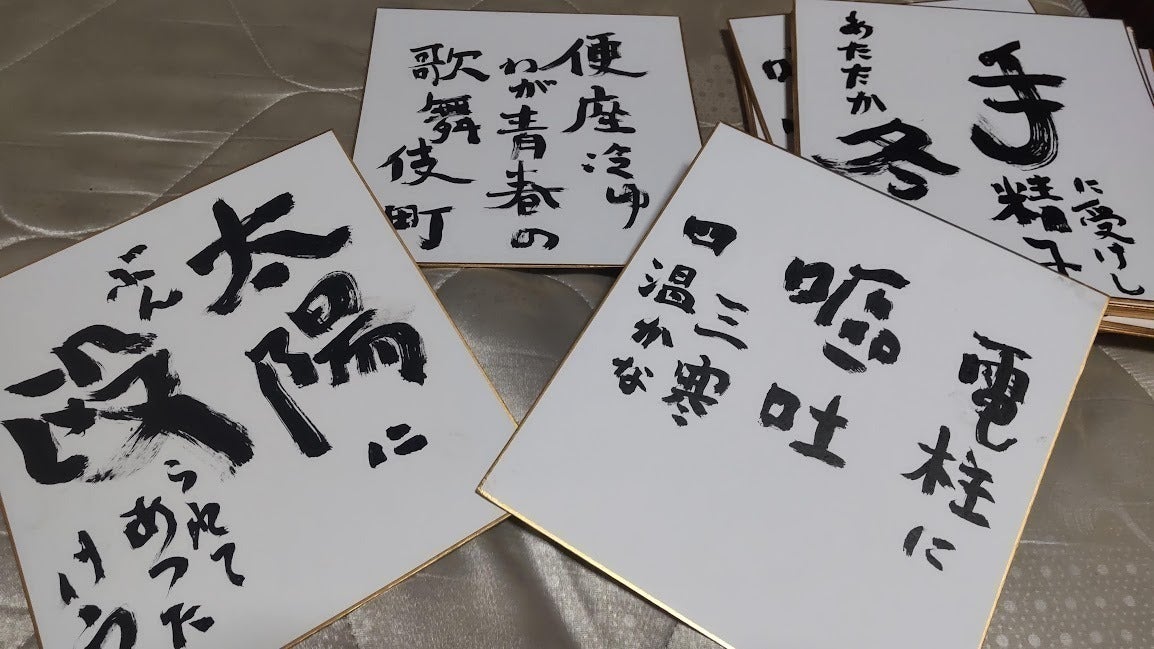 便座冷ゆ
わが青春の
歌舞伎町
手
に受けし
精子
あたたか
冬
太陽に
ぶん
殴
られて
あつた
けえ
電柱に
嘔吐
三寒
四温かな